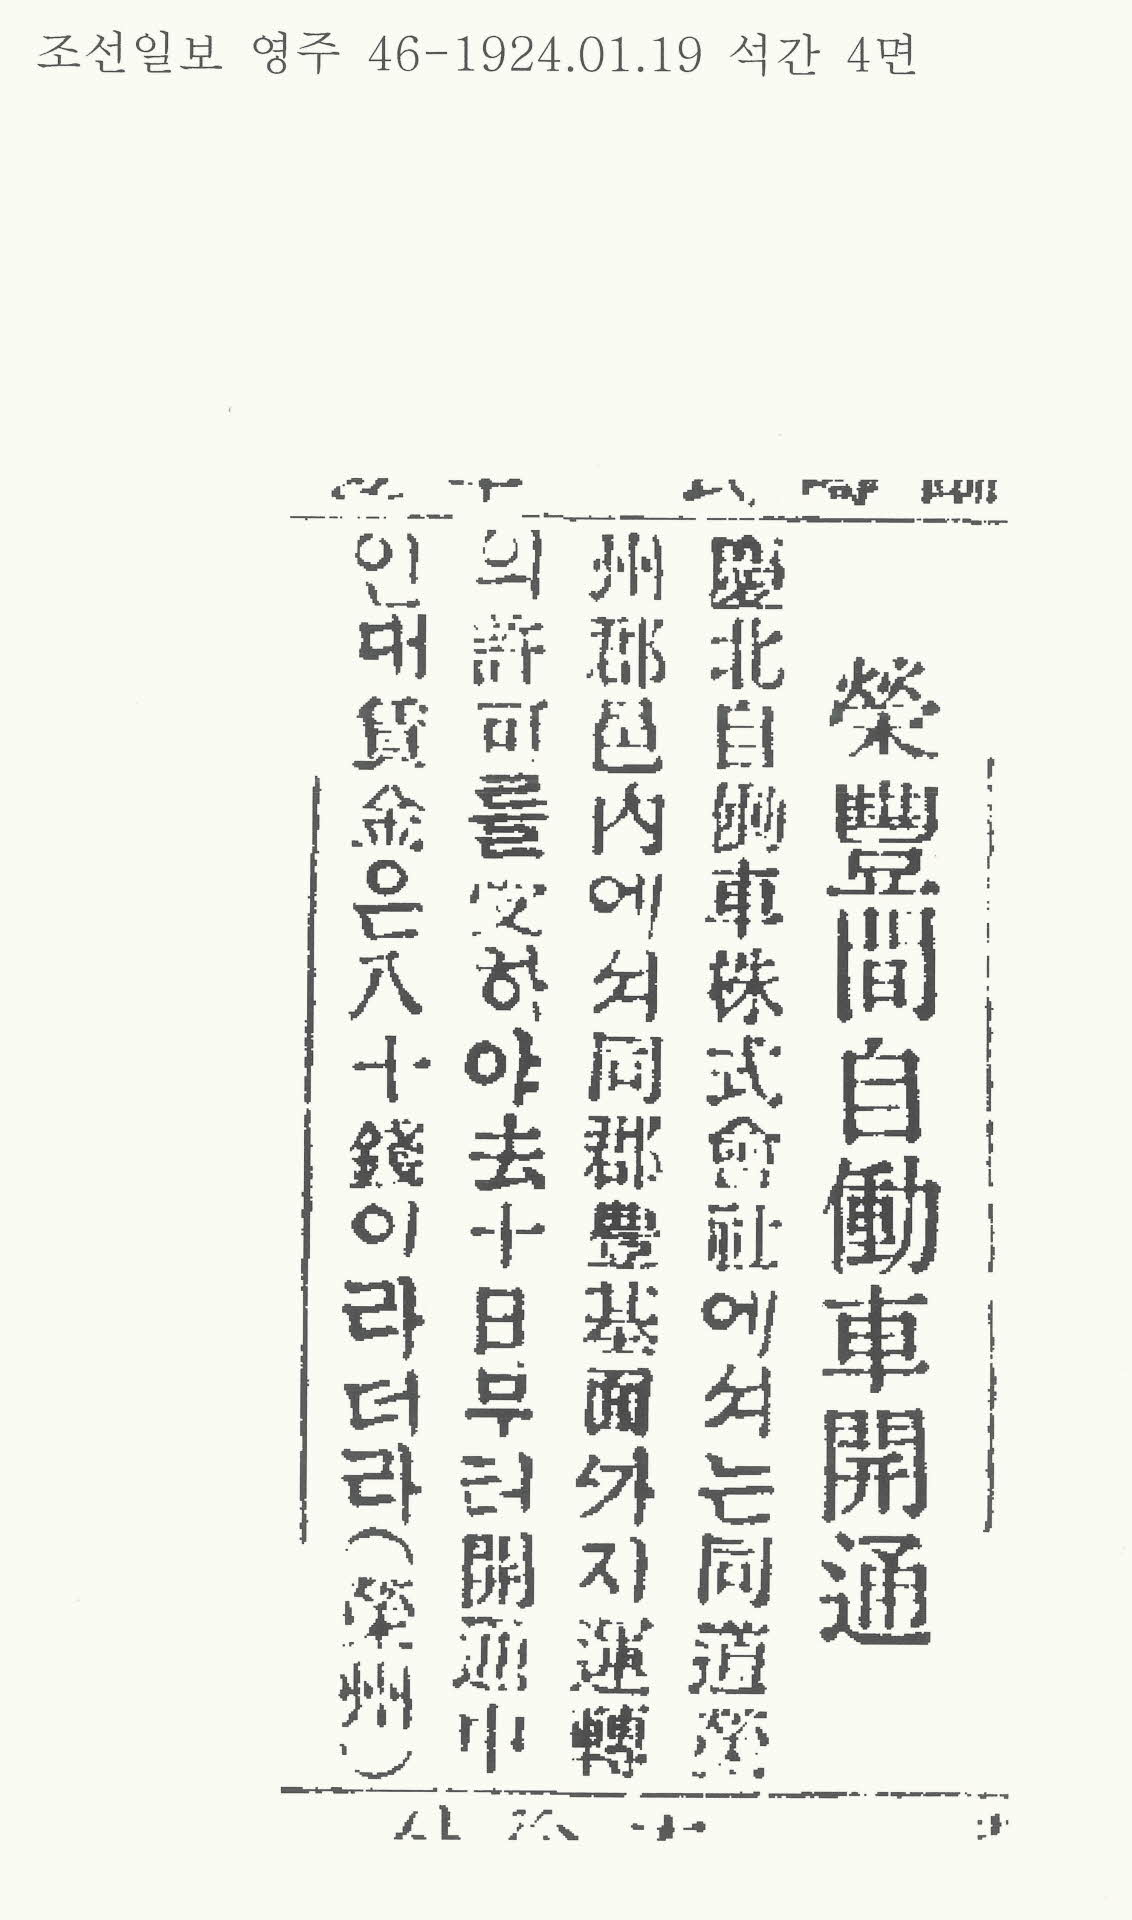 조선일보 영주 46-1924.01.19 석간 4면
榮豐間自働車開通
慶北自働車株式會社에서는同道榮
州郡邑內에서同郡豊基面ᄭᅡ지運轉
의許可를受하야去十日부터開通中
인대賃金은八十錢이라더라(榮州)